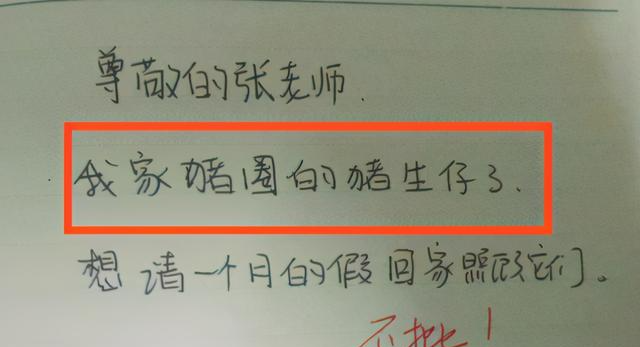 尊敬的张老师.
我家猪圈的猪生仔了.
想请一个月的假回家照顾它们。
不批！